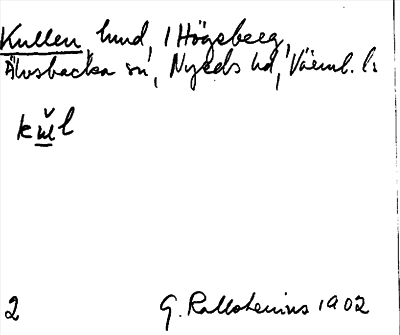 Kullen, lund, 1 Högsberg,
Älvsbacka sn, Nyeds hd, Värml. l.
2 G. Kallstenius 1902